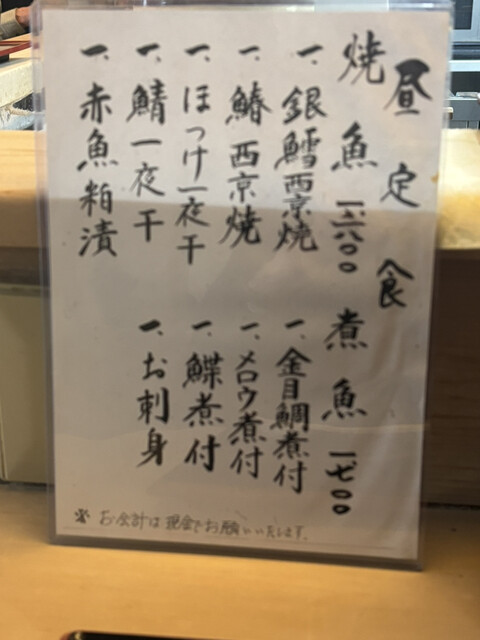 昼定食
焼魚 一六〇〇
一、銀鱈西京焼
一、鰆西京焼
一、ほっけ一夜干
一、鯖一夜干
一、赤魚粕漬
煮魚 一七〇〇
一、金目鯛煮付
一、メロウ煮付
一、鰈煮付
一、お刺身
※ お会計は現金でお願いいたします。